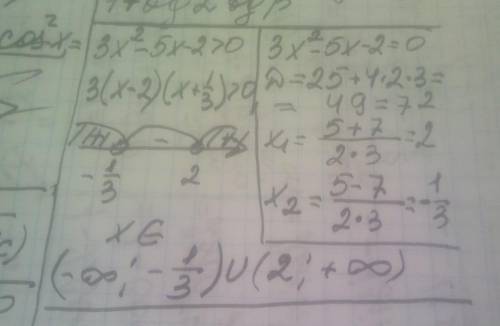 cos²x=
3x²-5x-2>0
3(x-2)(x+1/3)>0
+ - +
-1/3 2
x∈
(-∞; -1/3)∪(2; +∞)
3x²-5x-2=0
D=25+4·2·3=
= 49=7²
x₁= (5+7)/(2·3) =2
x₂= (5-7)/(2·3) =-1/3